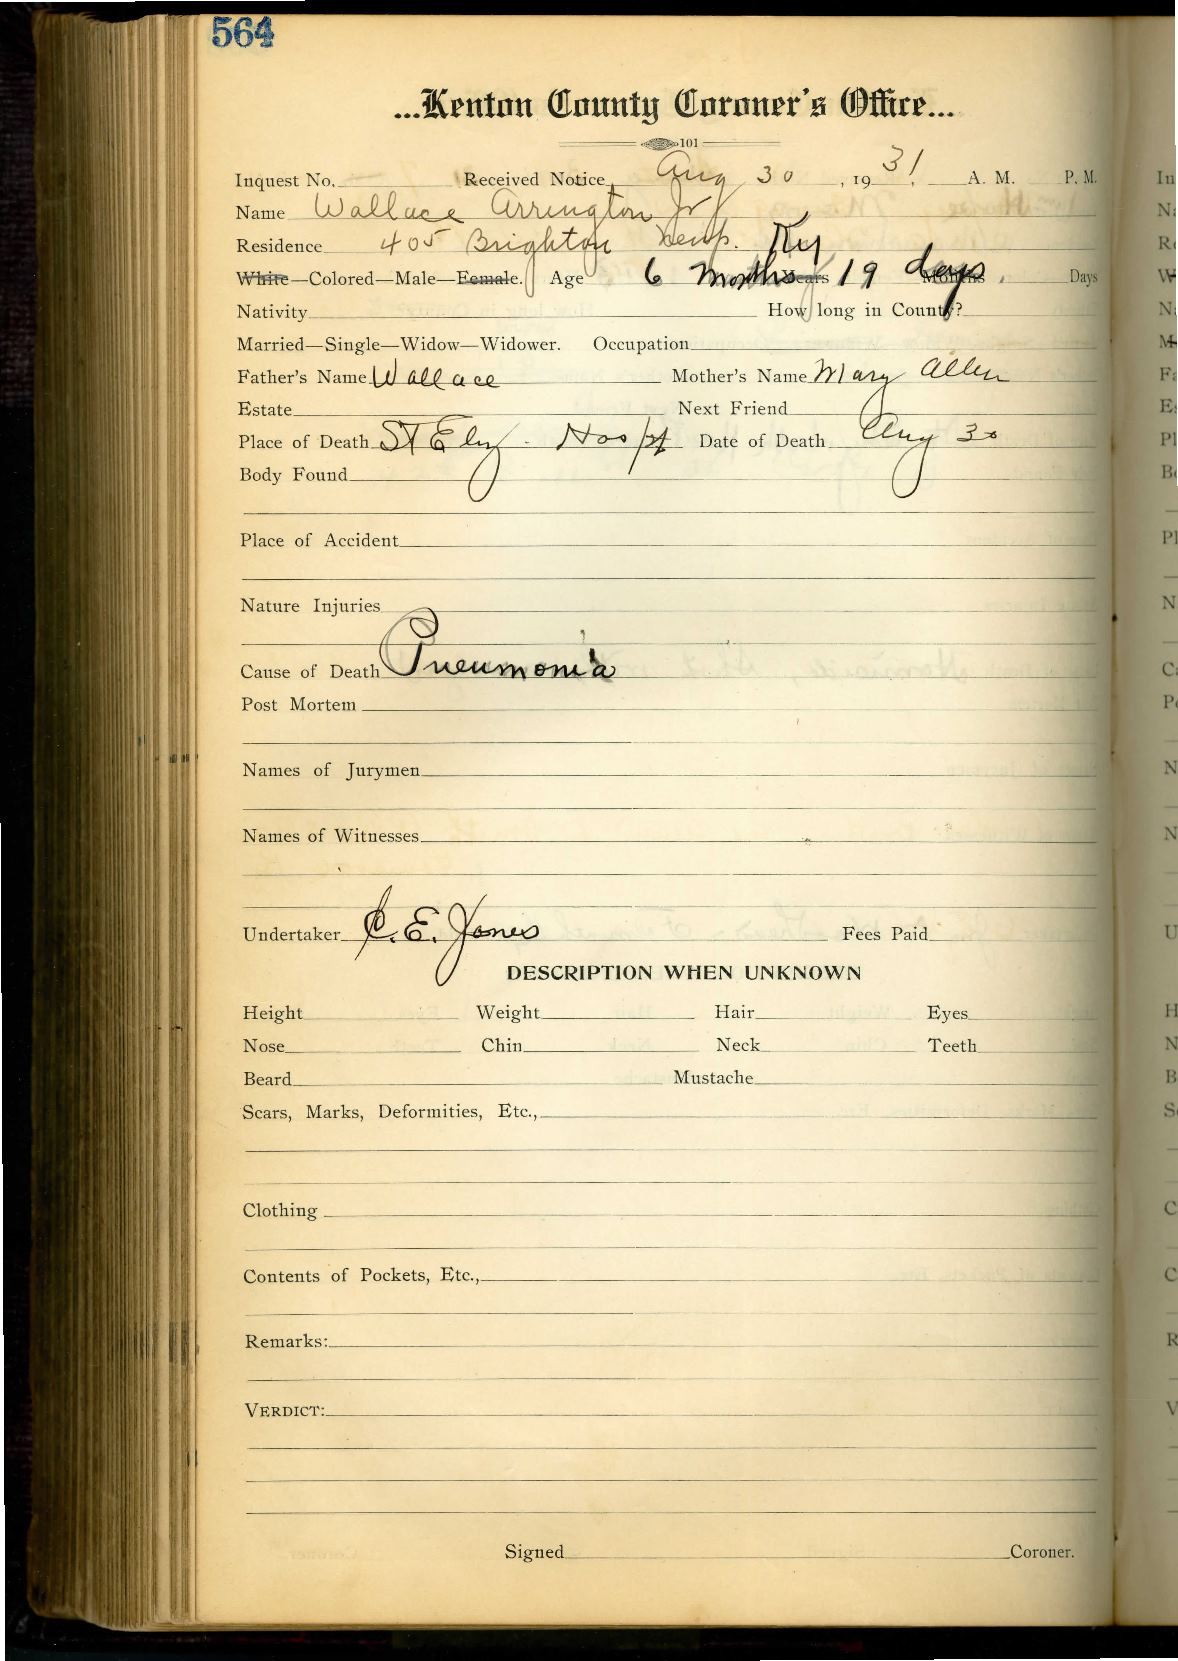 564
...Kenton County Coroner's Office...
101
Inquest No. Received Notice Aug 30, 1931 A. M. P. M.
Name Wallace Arrington Jr
Residence 405 Brighton Newp. Ky
White—Colored—Male—Female. Age 6 months Years 19 days Months Days
Nativity How long in County?
Married—Single—Widow—Widower. Occupation
Father's Name Wallace Mother's Name Mary Allen
Estate Next Friend
Place of Death St Eliz - Hospt Date of Death Aug 30
Body Found
Place of Accident
Nature Injuries
Cause of Death Pneumonia
Post Mortem
Names of Jurymen
Names of Witnesses
Undertaker C. E. Jones Fees Paid
DESCRIPTION WHEN UNKNOWN
Height Weight Hair Eyes
Nose Chin Neck Teeth
Beard Mustache
Scars, Marks, Deformities, Etc.,
Clothing
Contents of Pockets, Etc.,
Remarks:
VERDICT:
Signed Coroner.